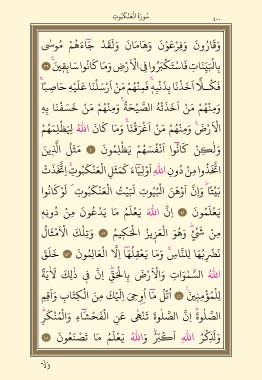 سُورَةُ الْعَنْكَبُوتِ
٤٠٠
وَقَارُونَ وَفِرْعَوْنَ وَهَامَانَ وَلَقَدْ جَٓاءَهُمْ مُوسٰى
بِالْبَيِّنَاتِ فَاسْتَكْبَرُوا فِي الْاَرْضِ وَمَا كَانُوا سَابِقٖينَۚ ﴿٣٩﴾
فَكُلًّا اَخَذْنَا بِذَنْبِهٖۚ فَمِنْهُمْ مَنْ اَرْسَلْنَا عَلَيْهِ حَاصِبًاۚ
وَمِنْهُمْ مَنْ اَخَذَتْهُ الصَّيْحَةُۚ وَمِنْهُمْ مَنْ خَسَفْنَا بِهِ
الْاَرْضَۚ وَمِنْهُمْ مَنْ اَغْرَقْنَاۚ وَمَا كَانَ اللّٰهُ لِيَظْلِمَهُمْ
وَلٰكِنْ كَانُٓوا اَنْفُسَهُمْ يَظْلِمُونَ ﴿٤٠﴾ مَثَلُ الَّذٖينَ
اتَّخَذُوا مِنْ دُونِ اللّٰهِ اَوْلِيَٓاءَ كَمَثَلِ الْعَنْكَبُوتِۚ اِتَّخَذَتْ
بَيْتًاۜ وَاِنَّ اَوْهَنَ الْبُيُوتِ لَبَيْتُ الْعَنْكَبُوتِۘ لَوْ كَانُوا
يَعْلَمُونَ ﴿٤١﴾ اِنَّ اللّٰهَ يَعْلَمُ مَا يَدْعُونَ مِنْ دُونِهٖ
مِنْ شَيْءٍۜ وَهُوَ الْعَزٖيزُ الْحَكٖيمُ ﴿٤٢﴾ وَتِلْكَ الْاَمْثَالُ
نَضْرِبُهَا لِلنَّاسِۚ وَمَا يَعْقِلُهَٓا اِلَّا الْعَالِمُونَ ﴿٤٣﴾ خَلَقَ
اللّٰهُ السَّمٰوَاتِ وَالْاَرْضَ بِالْحَقِّۜ اِنَّ فٖي ذٰلِكَ لَاٰيَةً
لِلْمُؤْمِنٖينَ۟ ﴿٤٤﴾ اُتْلُ مَٓا اُو۫حِيَ اِلَيْكَ مِنَ الْكِتَابِ وَاَقِمِ
الصَّلٰوةَۜ اِنَّ الصَّلٰوةَ تَنْهٰى عَنِ الْفَحْشَٓاءِ وَالْمُنْكَرِۜ
وَلَذِكْرُ اللّٰهِ اَكْبَرُۜ وَاللّٰهُ يَعْلَمُ مَا تَصْنَعُونَ ﴿٤٥﴾
وَلَا